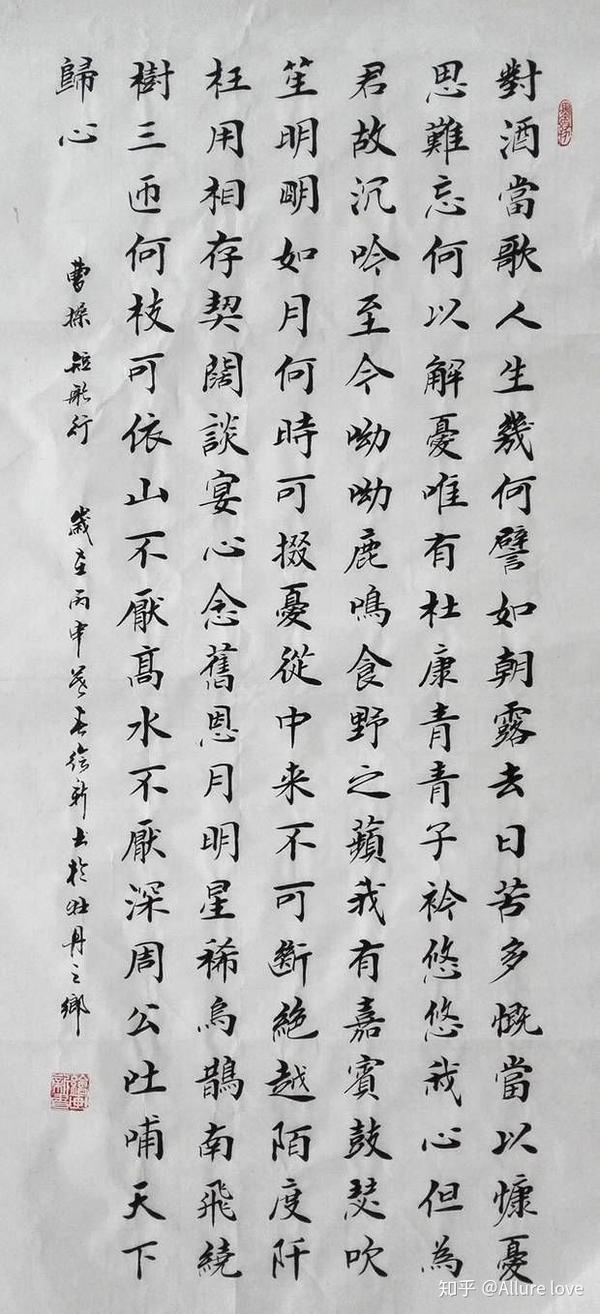 對酒當歌人生幾何譬如朝露去日苦多慨當以慷憂
思難忘何以解憂唯有杜康青青子衿悠悠我心但為
君故沉吟至今呦呦鹿鳴食野之蘋我有嘉賓鼓瑟吹
笙明眀如月何時可掇憂從中来不可斷絶越陌度阡
枉用相存契闊談宴心念舊恩月明星稀烏鵲南飛繞
樹三匝何枝可依山不厭髙水不厭深周公吐哺天下
歸心
曹操 短歌行 歲在丙申暮春徐新书於牡丹之鄉
知乎 @Allure love